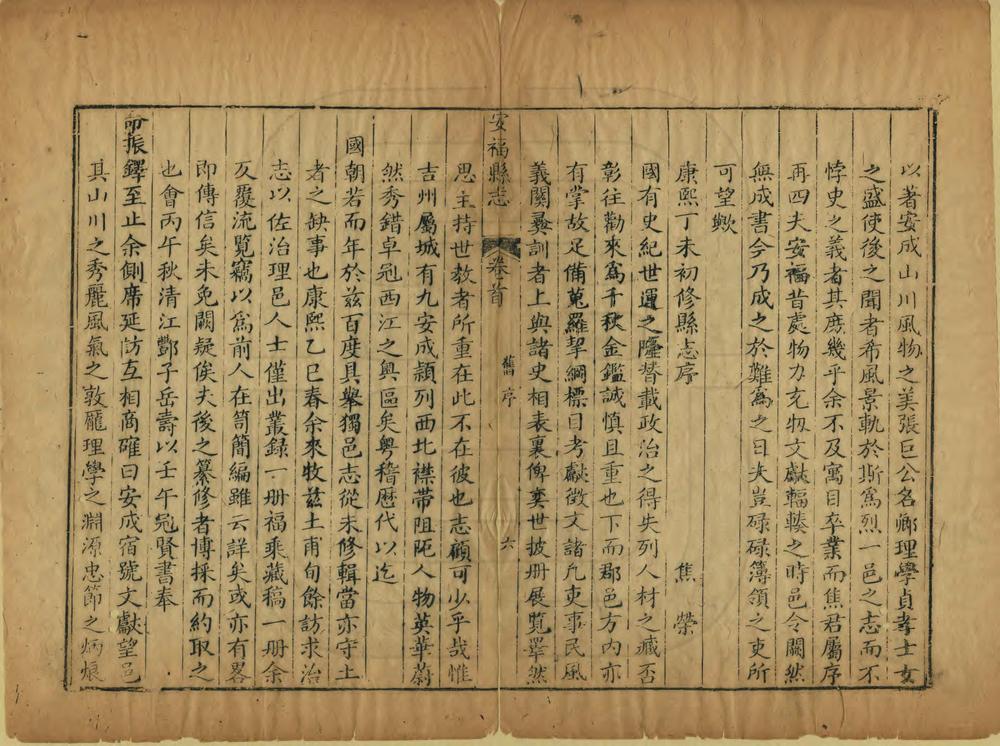 以著安成山川風物之美張巨公名卿理學貞孝士女
之盛使後之聞者希風景軌於斯爲烈一邑之志而不
悖史之義者其庶幾乎余不及寓目卒業而焦君屬序
再四夫安福昔處物力充牣文獻輻輳之時邑令闕然
無成書今乃成之於難爲之日夫豈碌碌簿領之吏所
可望歟
康熙丁未初修縣志序 焦榮
國有史紀世運之隆替載政治之得失列人材之臧否
彰往勸來爲千秋金鑑誠慎且重也下而郡邑方內亦
有掌故足備蒐羅挈綱標目考獻徵文諸凡吏事民風
義關彞訓者上與諸史相表裏俾奕世披册展覽犂然
安福縣志 卷首 舊序 六
思主持世教者所重在此不在彼也志顧可少乎哉惟
吉州屬城有九安成頴列西北襟帶阻阨人物英華蔚
然秀錯卓冠西江之輿區矣粤稽歷代以迄
國朝若而年於兹百度具舉獨邑志從未修輯當亦守土
者之缺事也康熙乙巳春余來牧兹土甫旬餘訪求治
志以佐治理邑人士僅出叢録一册福乘藏稿一册余
反覆流覽竊以爲前人在笥簡編雖云詳矣或亦有畧
即傳信矣未免闕疑俟夫後之纂修者博採而約取之
也會丙午秋清江酆子岳壽以壬午冠賢書奉
命振鐸至止余側席延訪互相商確曰安成宿號文獻望邑
其山川之秀麗風氣之敦龐理學之淵源忠節之炳烺